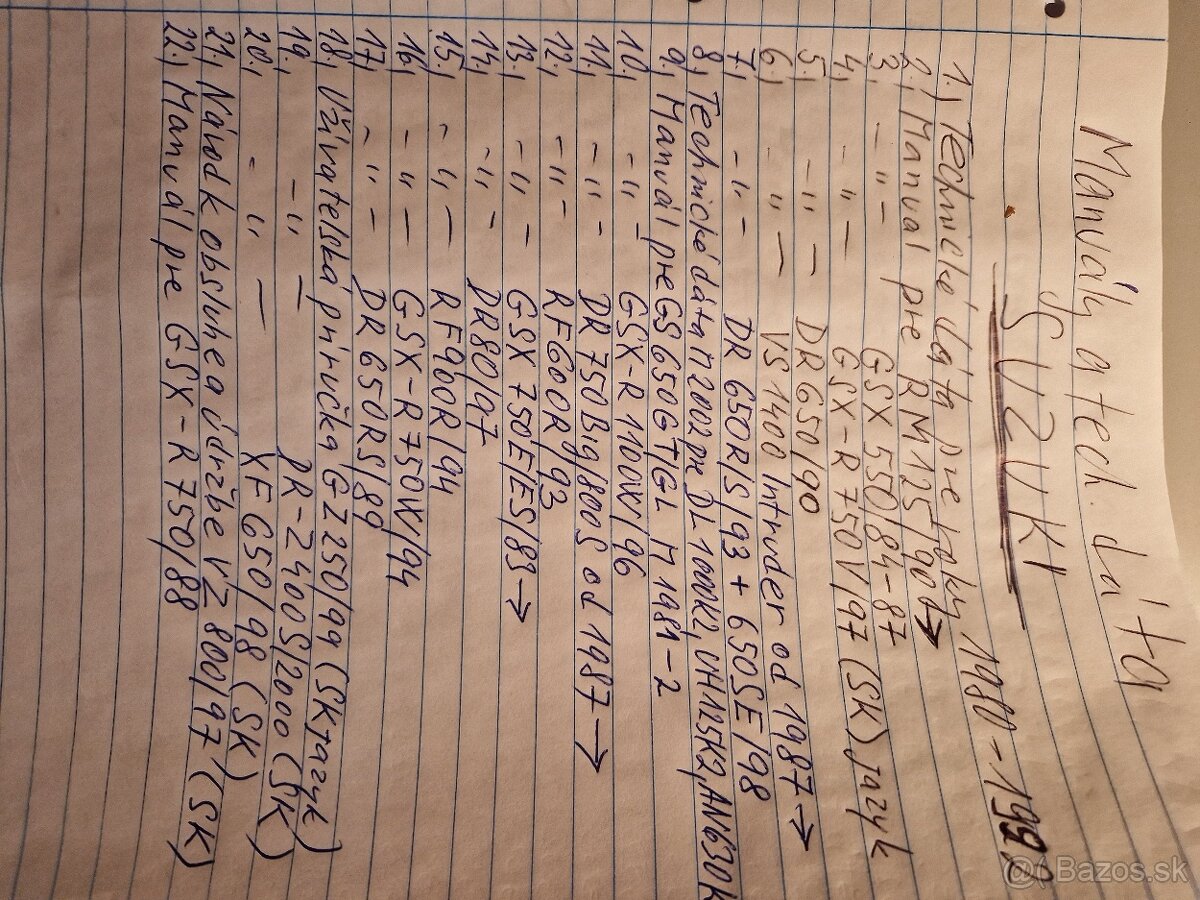 Manuály a tech. dáta
SUZUKI
1., Technické dáta pre typy 1980-1992
2., Manuál pre RM125/90→
3., -"- GSX 550/84-87
4., -"- GSX-R 750V/97 (SK) jazyk
5., -"- DR650/90
6., -"- VS 1400 Intruder od 1987→
7., -"- DR 650R/S/93 + 650SE/98
8., Technické dáta r. 2002 pre DL 1000K2, UH125K2, AN650K
9., Manuál pre GS 650GT GL M 1981-2
10., -"- GSX-R 1100W/96
11., -"- DR 750Big/800S od 1987→
12., -"- RF600R/93
13., -"- GSX 750E/ES/83→
14., -"- DR80/97
15., -"- RF900R/94
16., -"- GSX-R 750W/94
17., -"- DR 650RS/89
18., Užívateľská príručka GZ250/99 (SK jazyk)
19., -"- DR-Z400S/2000 (SK)
20., -"- XF 650/98 (SK)
21., Návod k obsluhe a údržbe VZ 800/97 (SK)
22., Manuál pre GSX-R 750/88
Bazos.sk